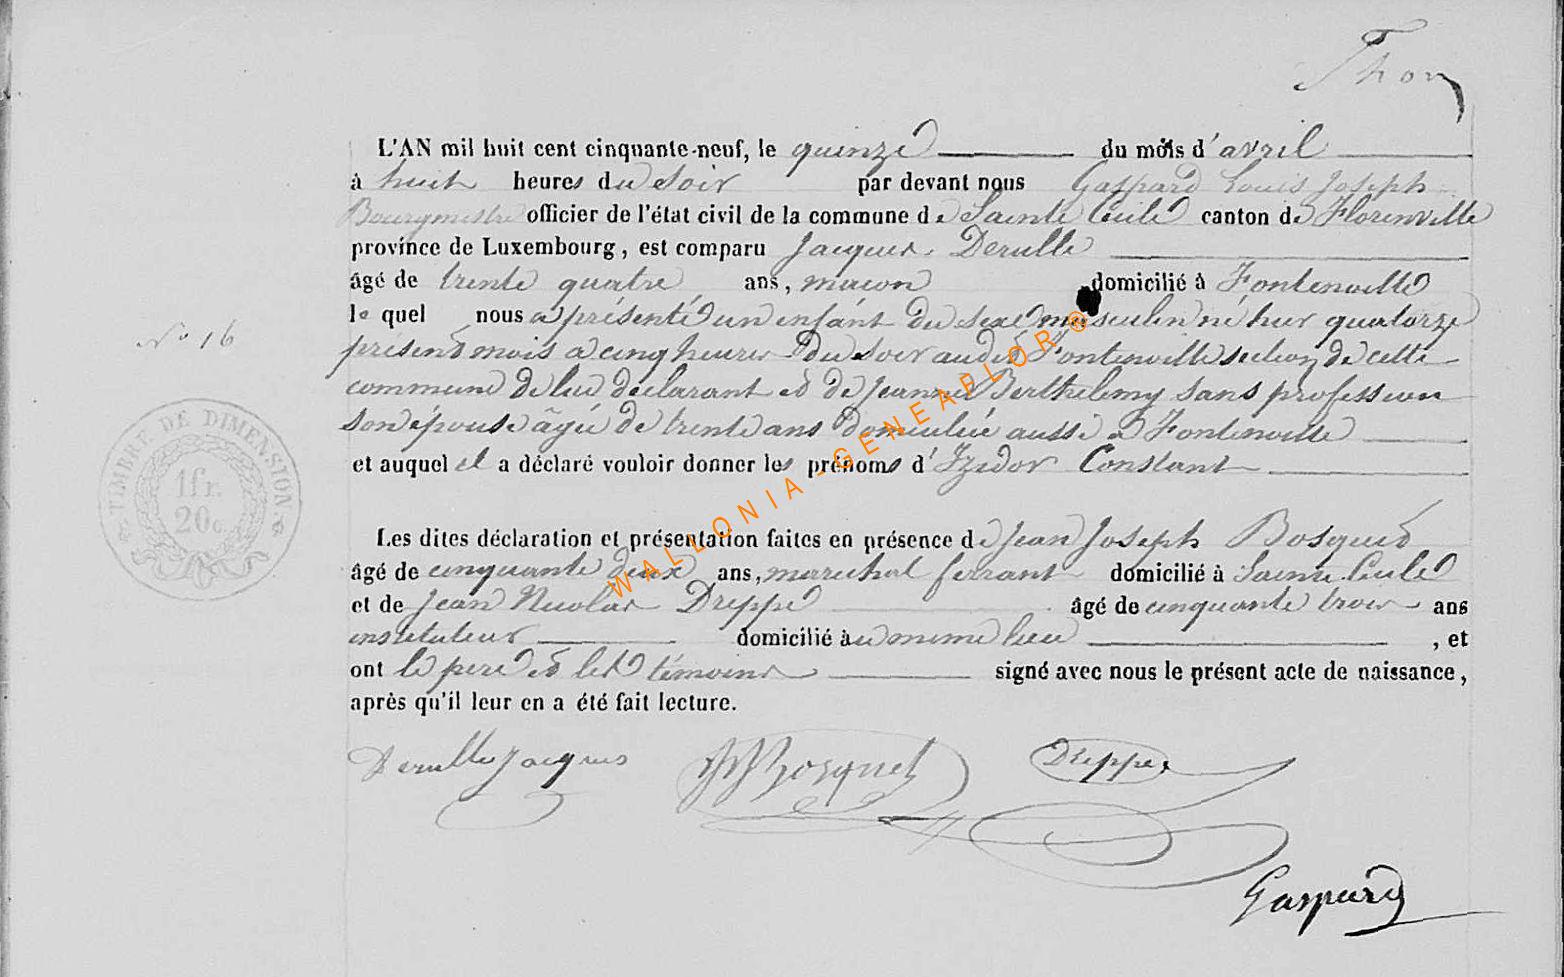 Thon
L'AN mil huit cent cinquante-neuf, le quinze du mois d'avril
à huit heures du soir par devant nous Gaspard Louis Joseph
Bourgmestre officier de l'état civil de la commune de Sainte Cécile canton de Florenville
province de Luxembourg, est comparu Jacques Derulle
âgé de trente quatre ans, macon domicilié à Fontenoille
le quel nous a présenté un enfant du sexe masculin né hier quatorze
present mois a cinq heures du soir audit Fontenoille section de cette
commune de lui déclarant et de Jeanne Berthelemy sans profession
son épouse âgée de trente ans domiciliée aussi a Fontenoille
et auquel il a déclaré vouloir donner les prénoms d'Izidor Constant
Les dites déclaration et présentation faites en présence de Jean Joseph Bosquet
âgé de cinquante deux ans, marechal ferrant domicilié à Sainte Cécile
et de Jean Nicolas Dreppe âgé de cinquante trois ans
instituteur domicilié au meme lieu , et
ont le pere et les témoins signé avec nous le présent acte de naissance,
après qu'il leur en a été fait lecture.
No 16
TIMBRE DE DIMENSION
1fr.
20c.
Derulle Jacques JJ Bosquet Dreppe
Gaspard
WALLONIA-GENEAFLOR®